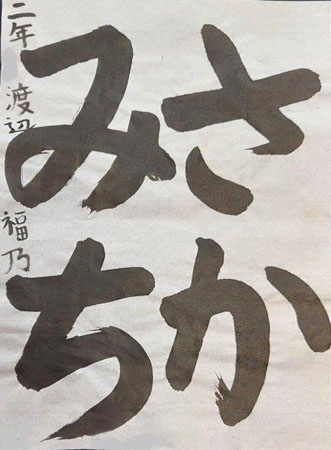 さか
みち
二年 渡辺 福乃